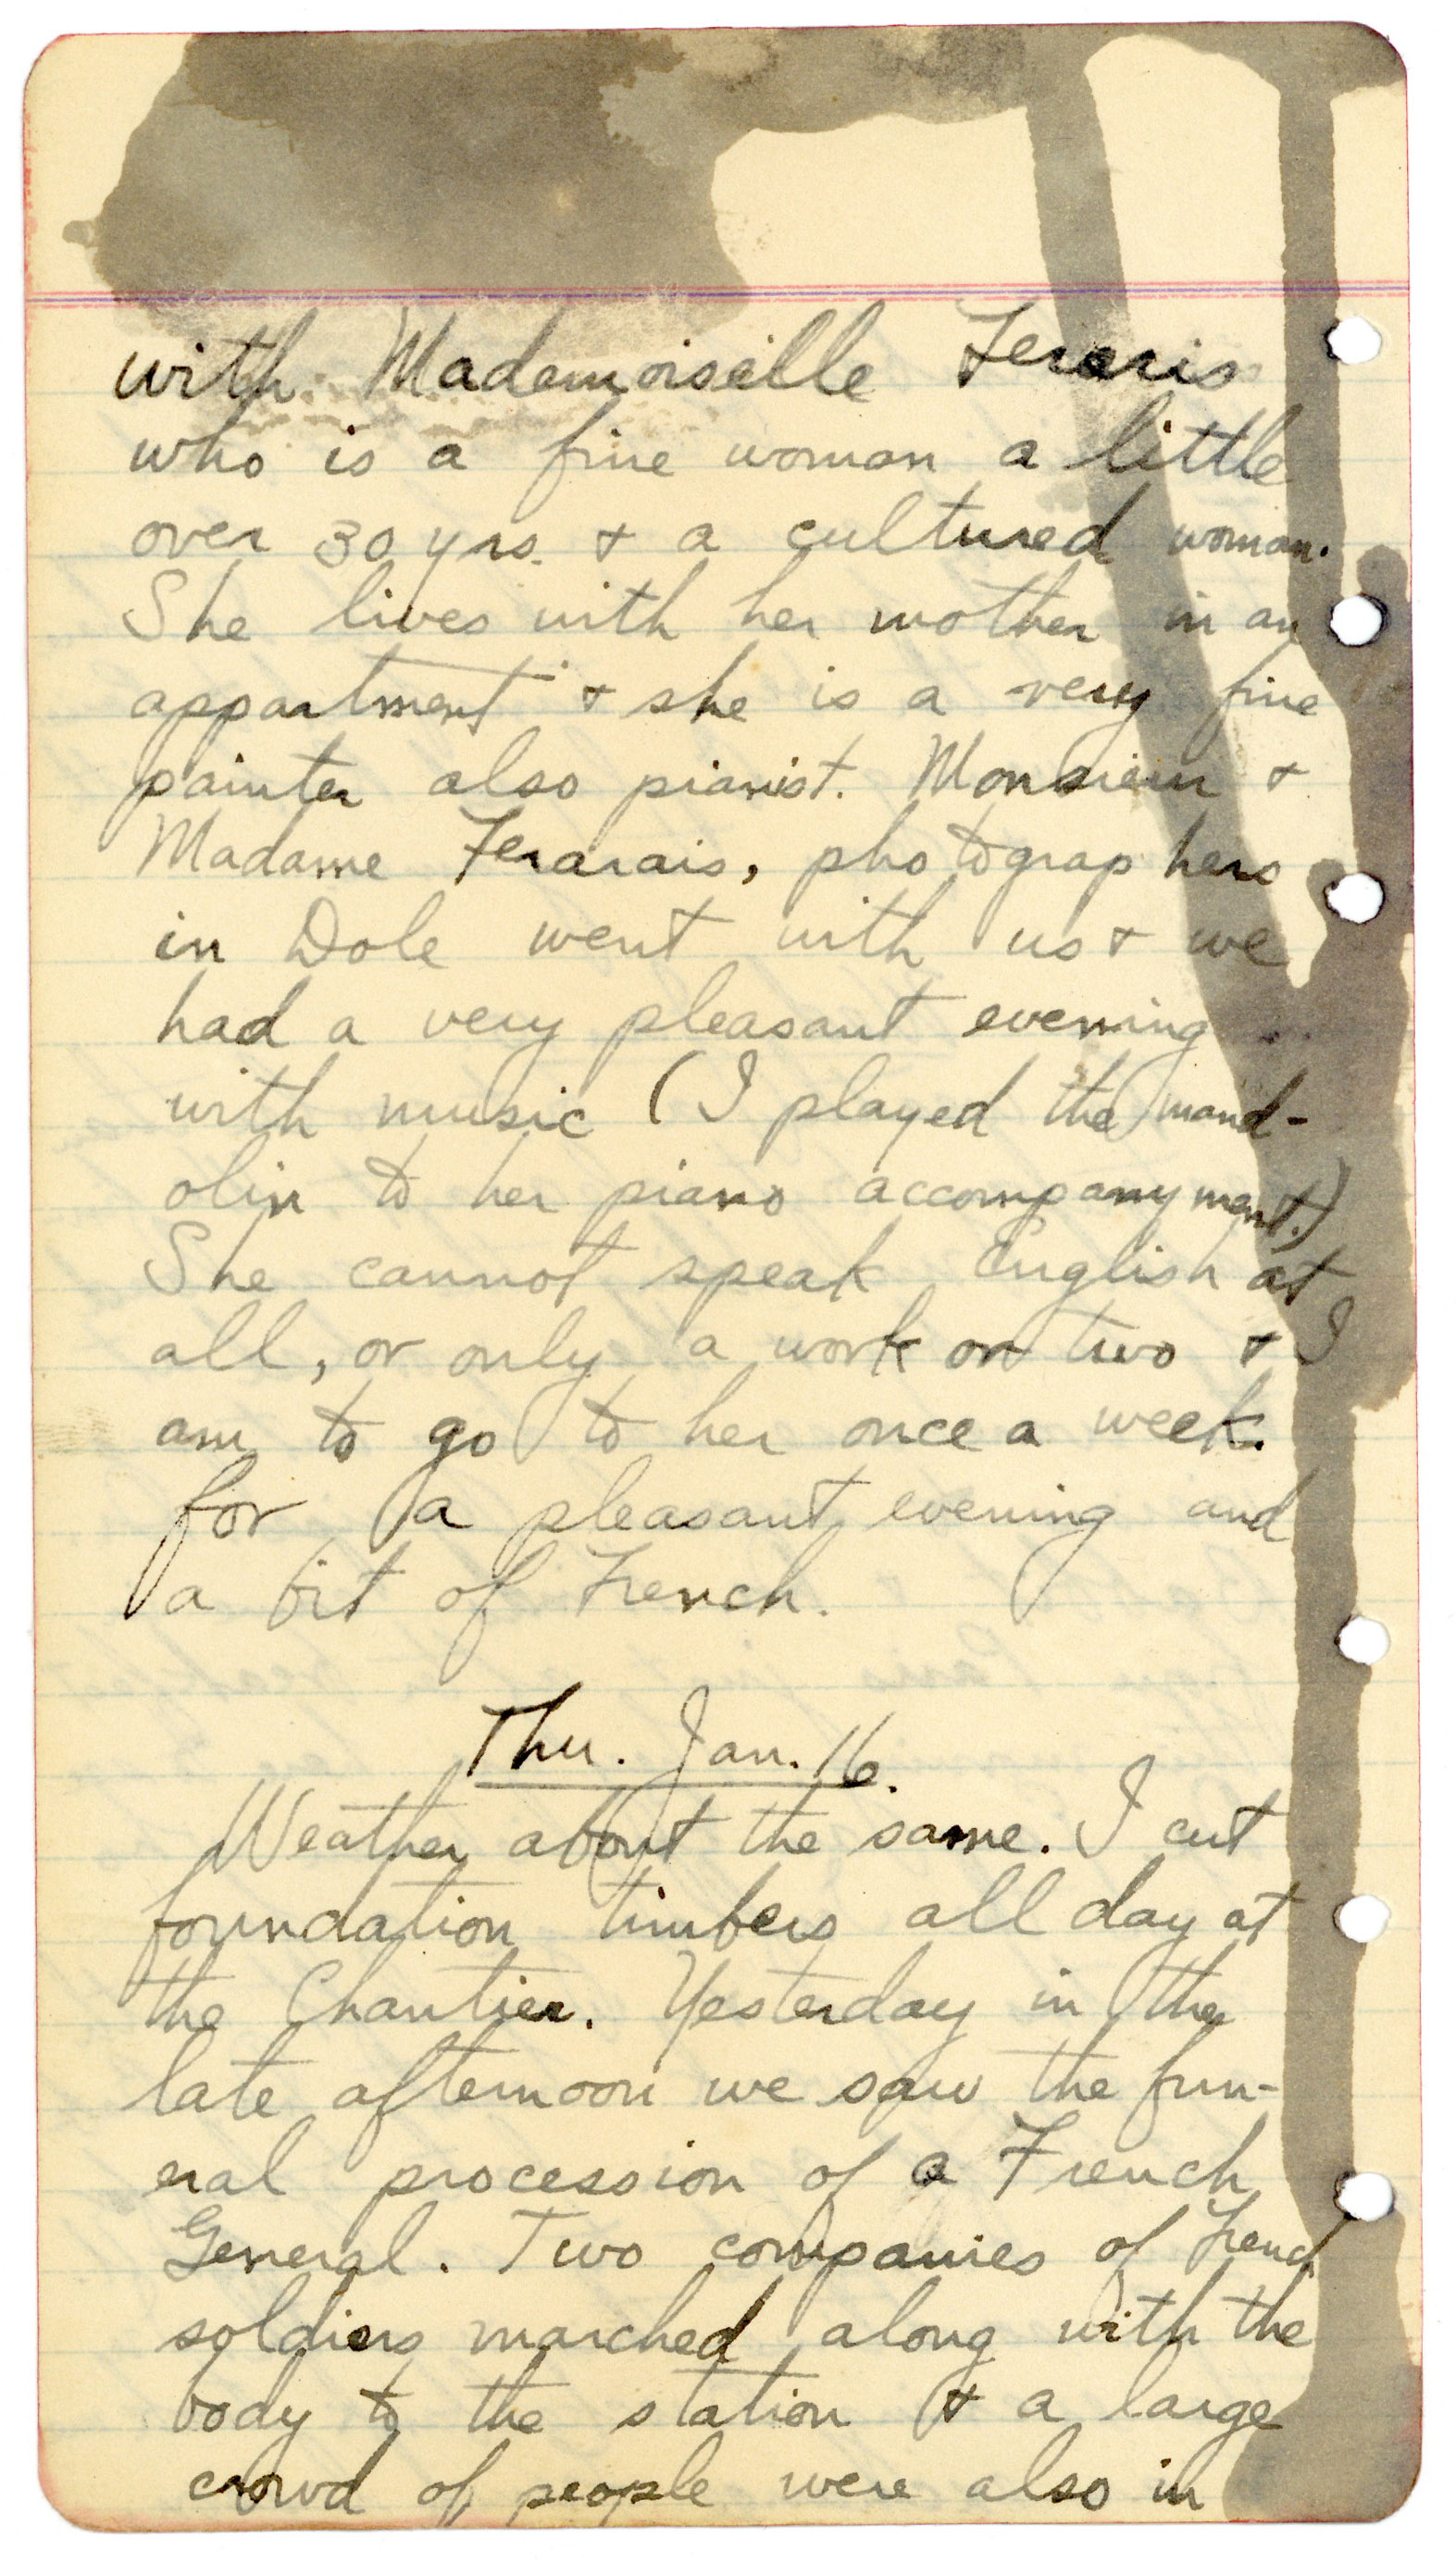 with Mademoiselle Feraris
who is a fine woman a little
over 30 yrs. & a cultured woman.
She lives with her mother in an
appartment & she is a very fine
painter also pianist. Monsieur &
Madame Ferarais, photographers
in Dole went with us & we
had a very pleasant evening
with music (I played the mand-
olin to her piano accompanyment.)
She cannot speak English at
all, or only a work or two & I
am to go to her once a week.
for a pleasant evening and
a bit of French.
Thu. Jan. 16.
Weather about the same. I cut
foundation timbers all day at
the Chantier. Yesterday in the
late afternoon we saw the fun-
eral procession of a French
General. Two companies of French
soldiers marched along with the
body to the station & a large
crowd of people were also in